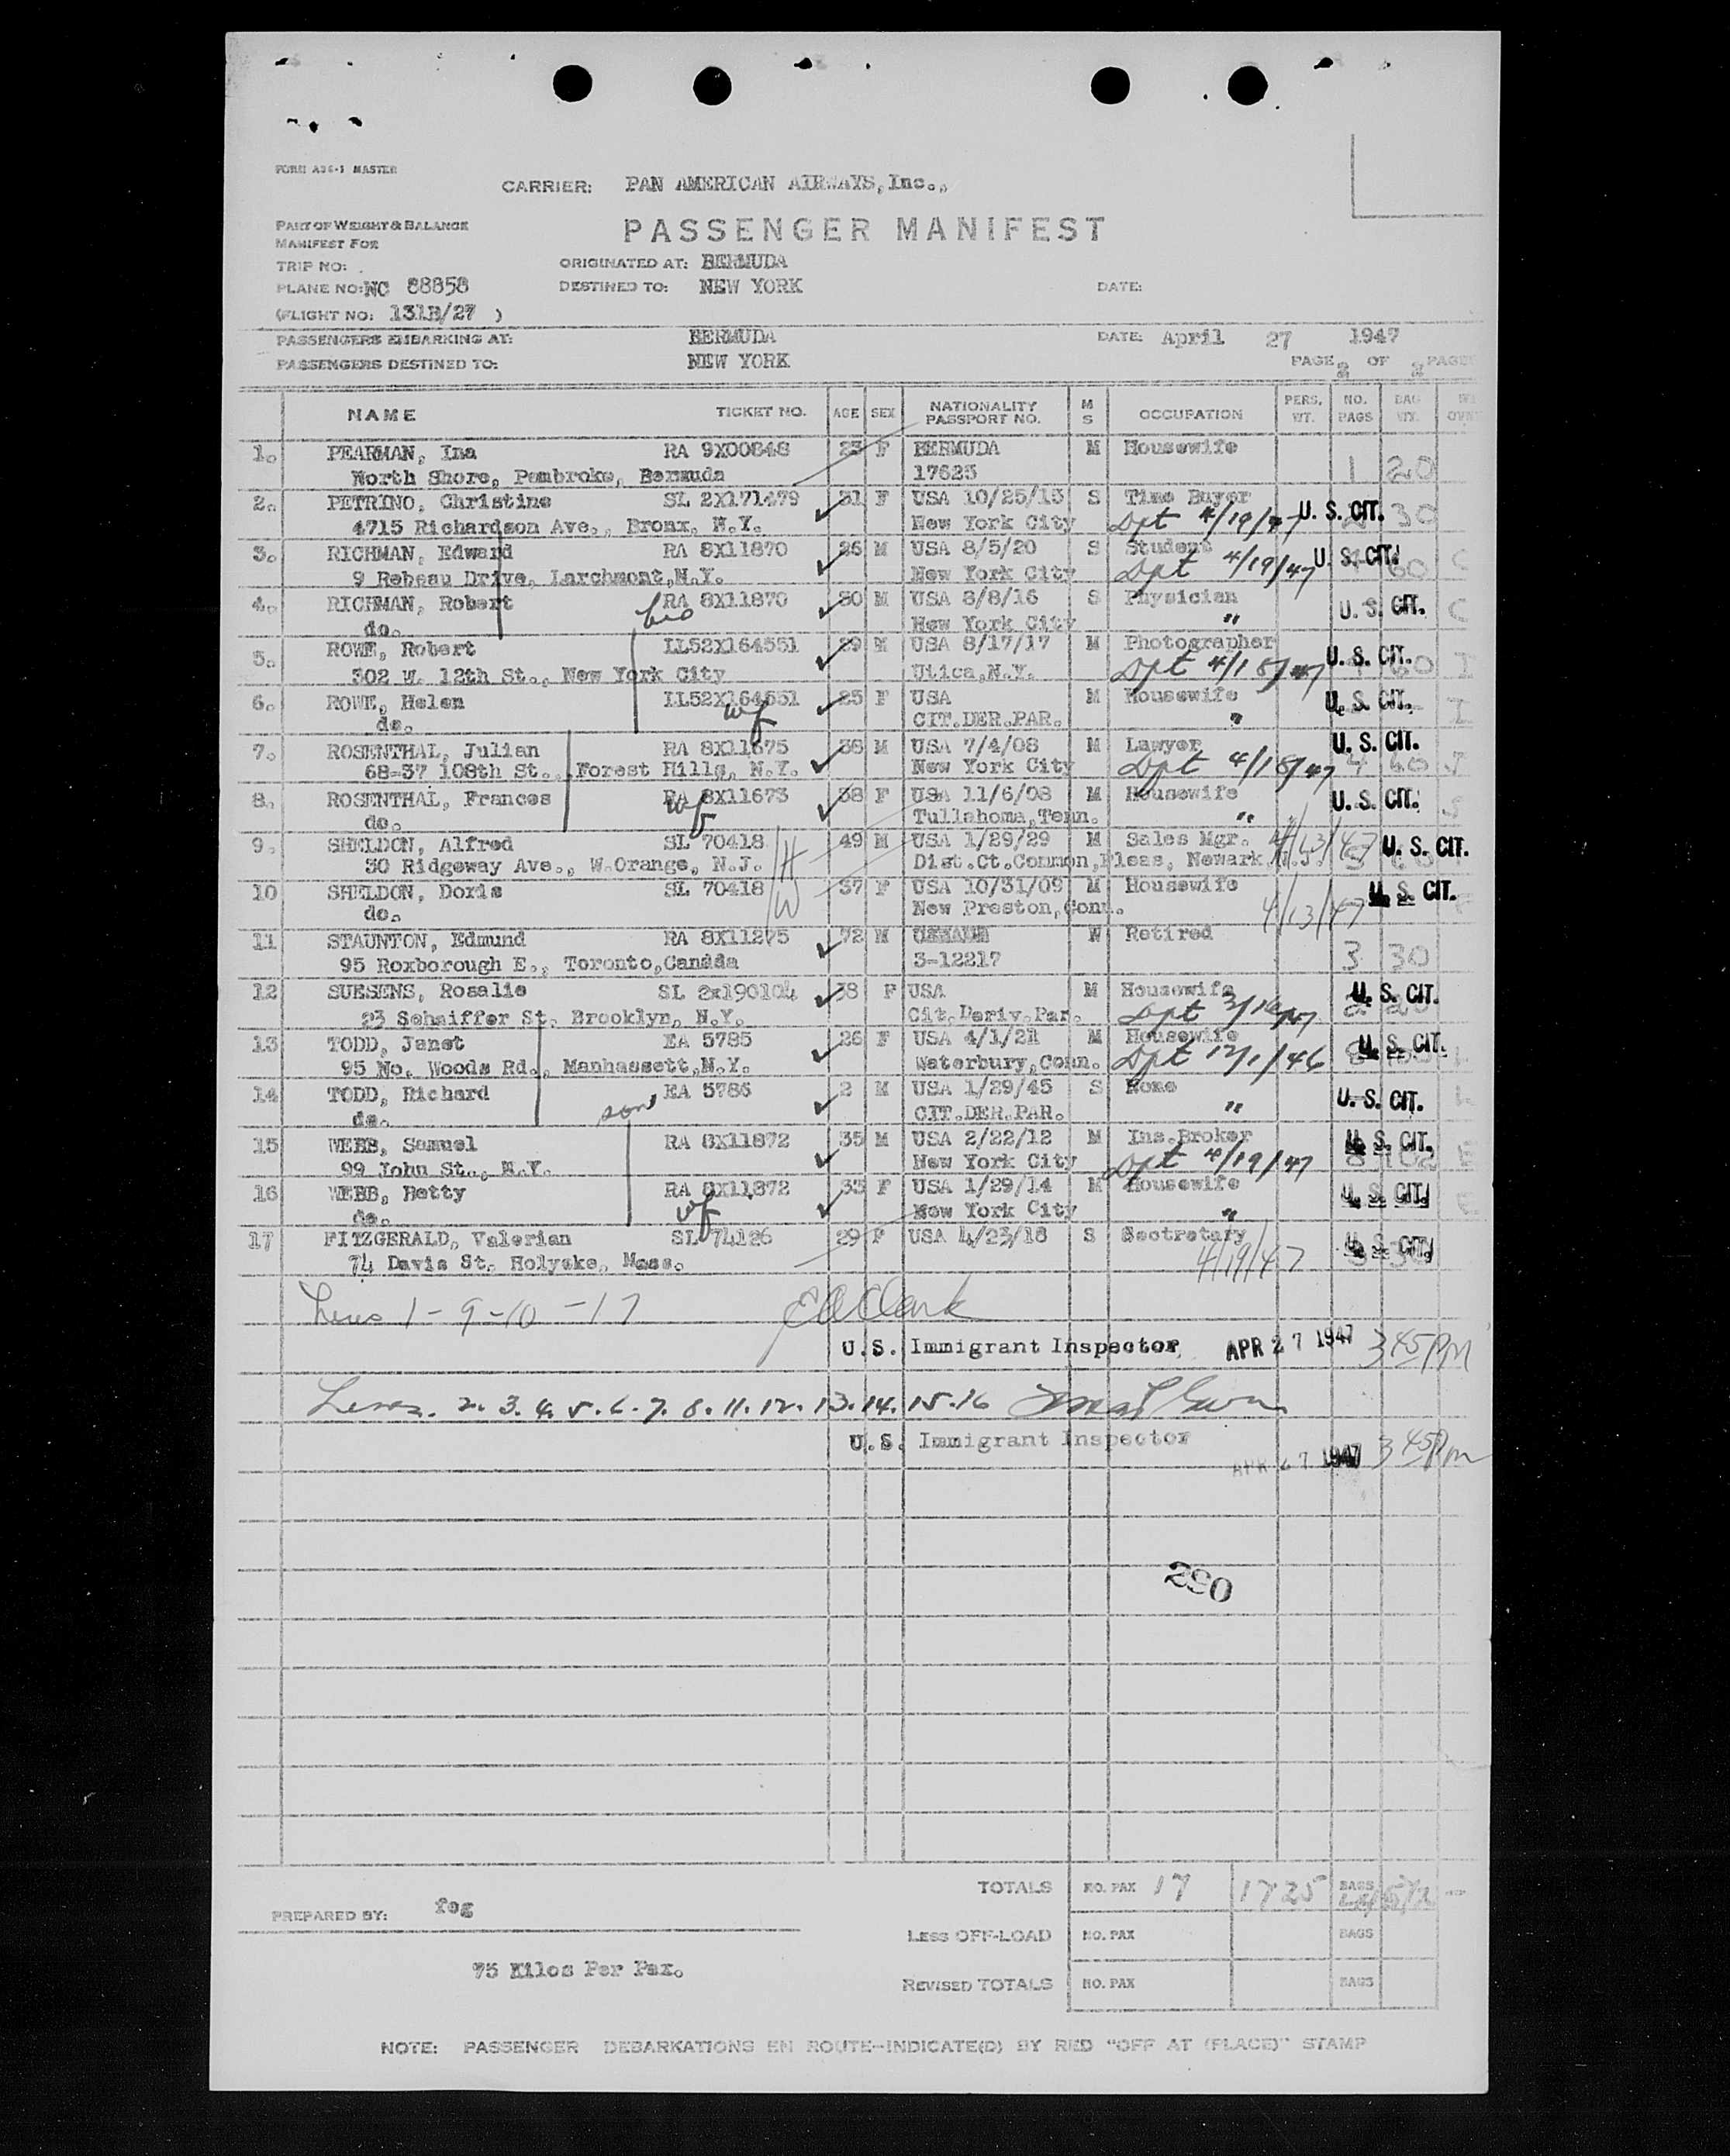 FORM A36-1 MASTER
CARRIER: PAN AMERICAN AIRWAYS, Inc.,
PART OF WEIGHT & BALANCE
MANIFEST FOR
PASSENGER MANIFEST
TRIP NO: ORIGINATED AT: BERMUDA
PLANE NO: NC 88858 DESTINED TO: NEW YORK DATE:
(FLIGHT NO: 131B/27 )
PASSENGERS EMBARKING AT: BERMUDA DATE: April 27 1947
PASSENGERS DESTINED TO: NEW YORK PAGE 2 OF 2 PAGES
NAME TICKET NO. AGE SEX NATIONALITY PASSPORT NO. M S OCCUPATION PERS. WT. NO. BAGS BAG WT.
1. PEARMAN, Ina RA 9X00848 23 F BERMUDA M Housewife
North Shore, Pembroke, Bermuda 17625 1 20
2. PETRINO, Christine SL 2X171479 31 F USA 10/25/15 S Time Buyer U. S. CIT. 30
4715 Richardson Ave., Bronx, N.Y. New York City Dpt 4/19/47
3. RICHMAN, Edward RA 8X11870 26 M USA 8/5/20 S Student U. S. CIT.
9 Rebeau Drive, Larchmont, N.Y. New York City Dpt 4/19/47
4. RICHMAN, Robert bro RA 8X11870 30 M USA 8/8/16 S Physician U. S. CIT.
do. New York City "
5. ROWE, Robert LL52X164551 29 M USA 8/17/17 M Photographer U. S. CIT.
302 W. 12th St., New York City Utica, N.Y. Dpt 4/18/47
6. ROWE, Helen LL52X164551 25 F USA M Housewife U. S. CIT.
do. wf CIT.DER.PAR. "
7. ROSENTHAL, Julian RA 8X11675 38 M USA 7/4/08 M Lawyer U. S. CIT.
68-37 108th St., Forest Hills, N.Y. New York City Dpt 4/18/47
8. ROSENTHAL, Frances RA 8X11673 38 F USA 11/6/08 M Housewife U. S. CIT.
do. wf Tullahoma, Tenn. "
9. SHELDON, Alfred SL 70418 H 49 M USA 1/29/29 M Sales Mgr. 4/13/47 U. S. CIT.
30 Ridgeway Ave., W.Orange, N.J. Dist.Ct.Common, Pleas, Newark N.J.
10 SHELDON, Doris SL 70418 W 37 F USA 10/31/09 M Housewife U. S. CIT.
do. New Preston, Conn. 4/13/47
11 STAUNTON, Edmund RA 8X11275 72 M W Retired
95 Roxborough E., Toronto, Canada 3-12217 3 30
12 SUESENS, Rosalie SL 2x190104 38 F USA M Housewife U. S. CIT.
23 Schaiffer St. Brooklyn, N.Y. Cit.Deriv.Par. Dpt
13 TODD, Janet EA 5785 26 F USA 4/1/21 M Housewife U. S. CIT.
95 No. Woods Rd., Manhassett, N.Y. Waterbury, Conn. Dpt 12/1/46
14 TODD, Richard EA 5786 2 M USA 1/29/45 S None U. S. CIT.
do. son CIT.DER.PAR. "
15 WEBB, Samuel RA 8X11872 35 M USA 2/22/12 M Ins.Broker U. S. CIT.
99 John St., N.Y. New York City Dpt 4/19/47
16 WEBB, Betty RA 8X11872 33 F USA 1/29/14 M Housewife U. S. CIT.
do. wf New York City "
17 FITZGERALD, Valerian SL 74126 29 F USA 4/23/18 S Sectretary U. S. CIT.
74 Davis St. Holyoke, Mass. 4/19/47
Lines 1-9-10-17 E A Clark
U.S. Immigrant Inspector APR 27 1947 3 45 PM
Lines. 2. 3. 4. 5. 6. 7. 8. 11. 12. 13. 14. 15. 16
U.S. Immigrant Inspector
APR 27 1947 3 45 Pm
290
TOTALS NO. PAX 17 1725 BAGS
PREPARED BY: feg
LESS OFF-LOAD NO. PAX BAGS
75 Kilos Per Pax.
REVISED TOTALS NO. PAX BAGS
NOTE: PASSENGER DEBARKATIONS EN ROUTE-INDICATE(D) BY RED "OFF AT (PLACE)" STAMP